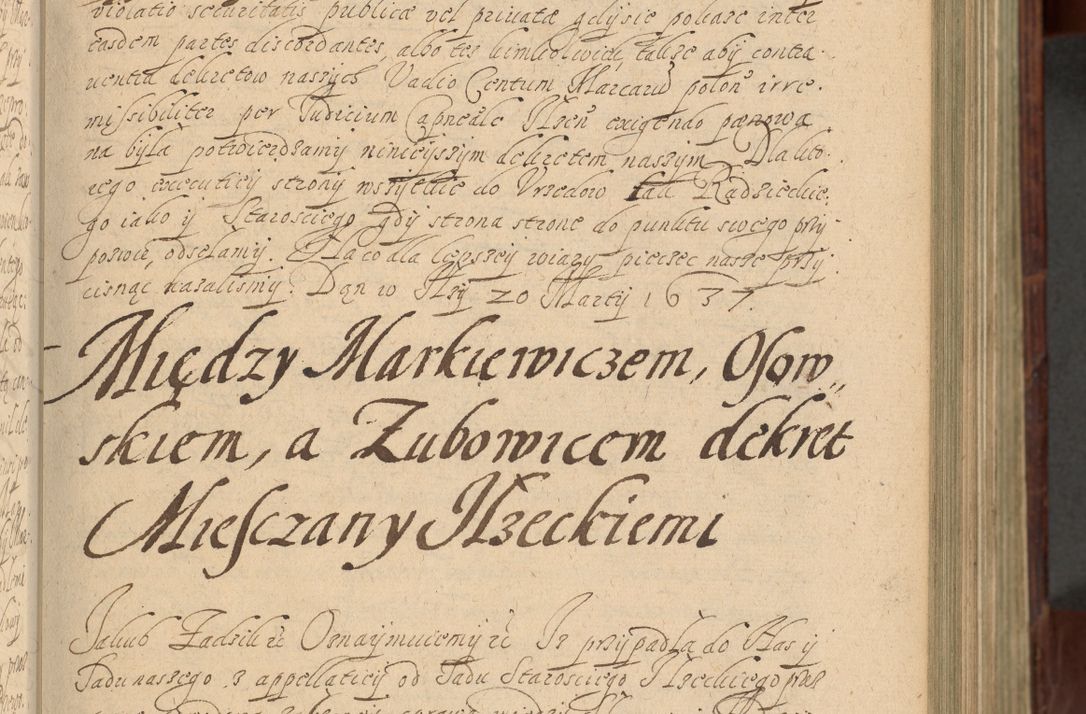 violatio securitatis publicæ vel privatæ gdysie pokaze inter
easdem partes discordantes, albo tes kimkolwiek, takze aby contra
uentia dekretow naszych Vadio Centum Marcarũ polon irre
missibiliter per Judicium Capneale Ilzeñ exigendo panowa
na była potwierdzamy ninieyszym dekretem naszym Dla kto
rego executiey strony wszytkie do Vrzedow tak Radzieckie
go iako ij Starosciego gdy strona strone do punktu swego przy
pozwie, odsełamy. Na co dla lepszey wiary pieczec nasze przy
cisnąc kazalismy. Dąn w Ilży 20 Marty 1637
Między Markiewiczem, Osow„
skiem, a Zubowicem dekret
Miesczany Ilzeckiemi
Jakub Zadzik ẽc Oznaymuiemy ẽc Iz przypadła do Nas y
Sadu naszego z appellatiey od Sadu Starosciego Ilzeckiego